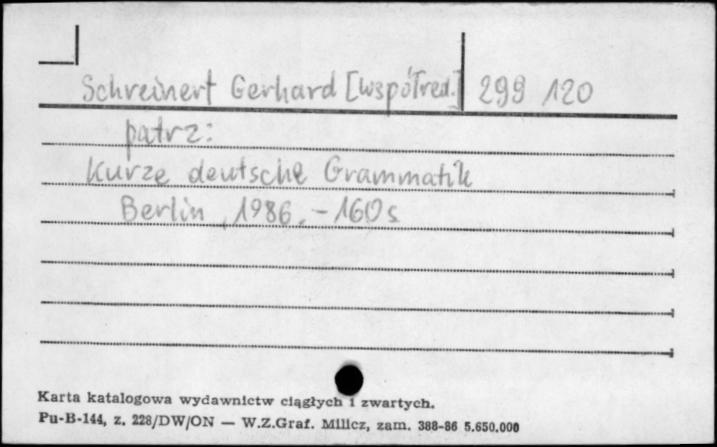 Schreinert Gerhard [współred.] 299 120
patrz:
Kurze deutsche Grammatik
Berlin, 1986. - 160 s
Karta katalogowa wydawnictw ciągłych i zwartych.
Pu-B-144, z. 228/DW/ON — W.Z.Graf. Milicz, zam. 388-86 5.650.000